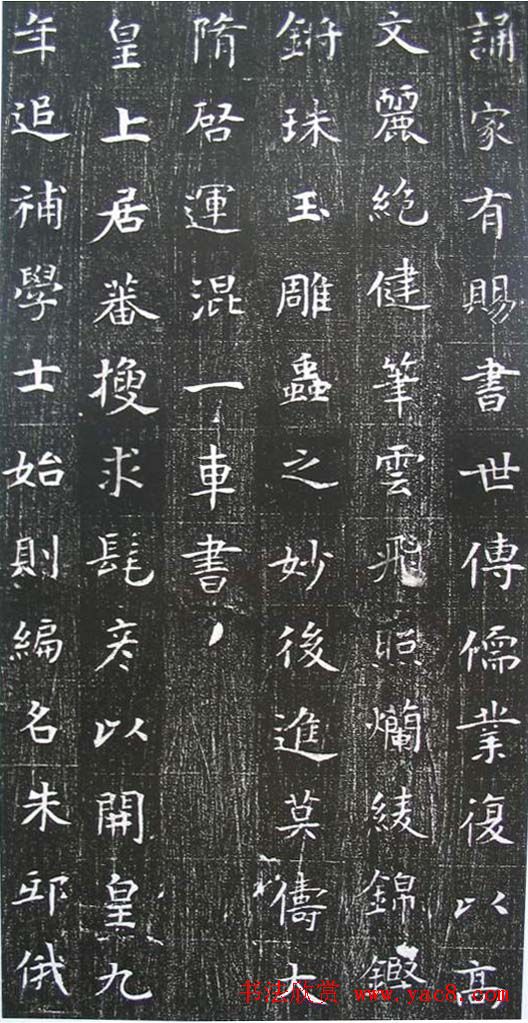 誦家有賜書世傳儒業復以高
文麗絶健筆雲飛照爛綾錦鏗
鏘珠玉雕蟲之妙後進莫儔大
隋啓運混一車書
皇上居蕃搜求髦彦以開皇九
年追補學士始則編名朱邸俄
书法欣赏 www.yac8.com